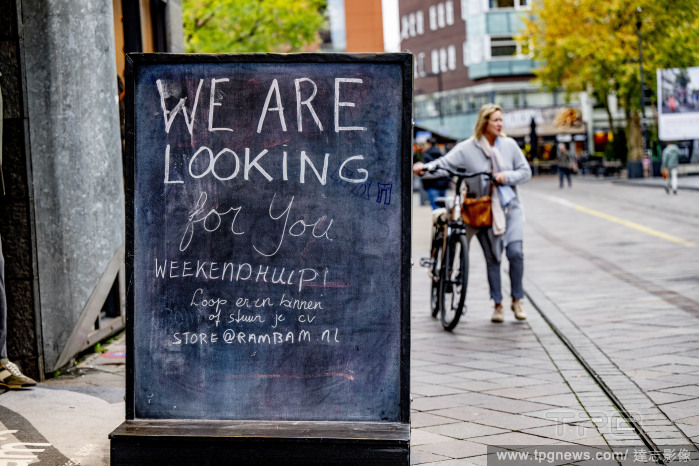 WE ARE
LOOKING
for You
WEEKENDHULP!
Loop even binnen
of stuur je cv
STORE@RAMBAM.NL
TPG
www.tpgnews.com/ 達志影像